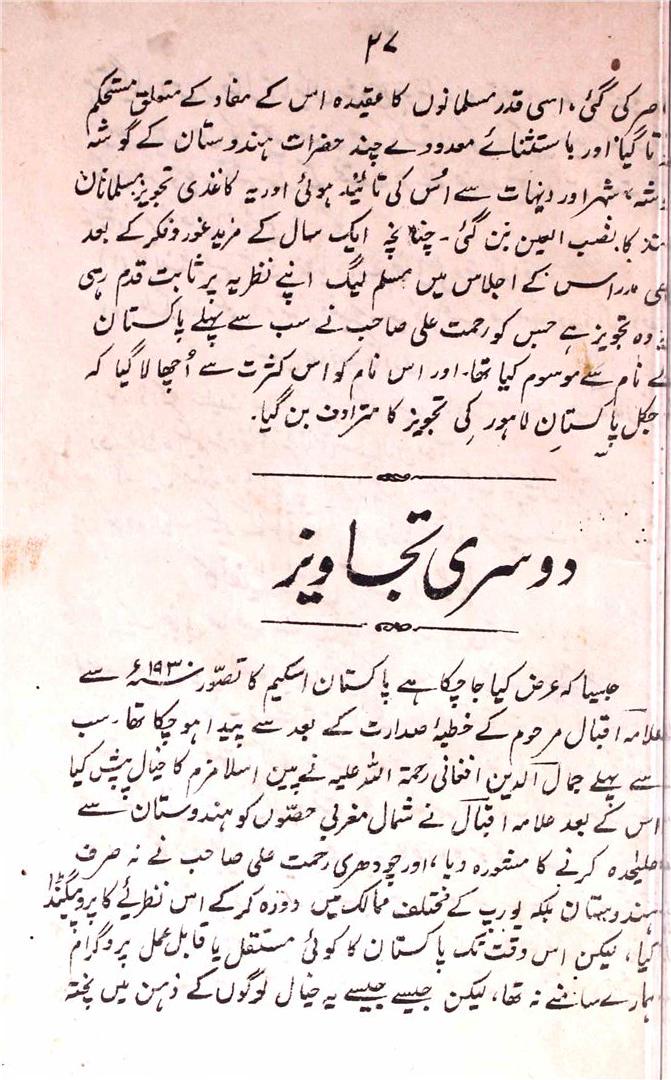 ۲۷
صر کی گئی، اسی قدر مسلمانوں کا عقیدہ اس کے مفاد کے متعلق مستحکم
تا گیا اور با ستثنائے معدودے چند حضرات ہندوستان کے گوشہ
شہ، شہر اور دیہات سے اُس کی تائید ہوئی اور یہ کاغذی تجویز مسلمانان
ہند کا نصب العین بن گئی۔ چنانچہ ایک سال کے مزید غور و فکر کے بعد
مدراس کے اجلاس میں مسلم لیگ اپنے نظریہ پر ثابت قدم رہی
وہ تجویز ہے جس کو رحمت علی صاحب نے سب سے پہلے پاکستان
کے نام سے موسوم کیا تھا۔ اور اس نام کو اس کثرت سے اُچھالا گیا کہ
جکل پاکستان لاہور کی تجویز کا مترادف بن گیا۔
دوسری تجاویز
جیسا کہ عرض کیا جا چکا ہے پاکستان اسکیم کا تصوّر سنہ ۱۹۳۰ء سے
علامہ اقبال مرحوم کے خطبۂ صدارت کے بعد سے پیدا ہو چکا تھا۔ سب
سے پہلے جمال الدین افغانی رحمۃ اللہ علیہ نے پین اسلامزم کا خیال پیش کیا
اس کے بعد علامہ اقبال نے شمال مغربی حصّوں کو ہندوستان سے
علیٰحدہ کرنے کا مشورہ دیا، اور چودھری رحمت علی صاحب نے نہ صرف
ہندوستان بلکہ یورپ کے مختلف ممالک میں دورہ کر کے اس نظریئے کا پروپیگنڈا
کیا، لیکن اس وقت تک پاکستان کا کوئی مستقل یا قابل عمل پروگرام
ہمارے سامنے نہ تھا، لیکن جیسے جیسے یہ خیال لوگوں کے ذہن میں پختہ